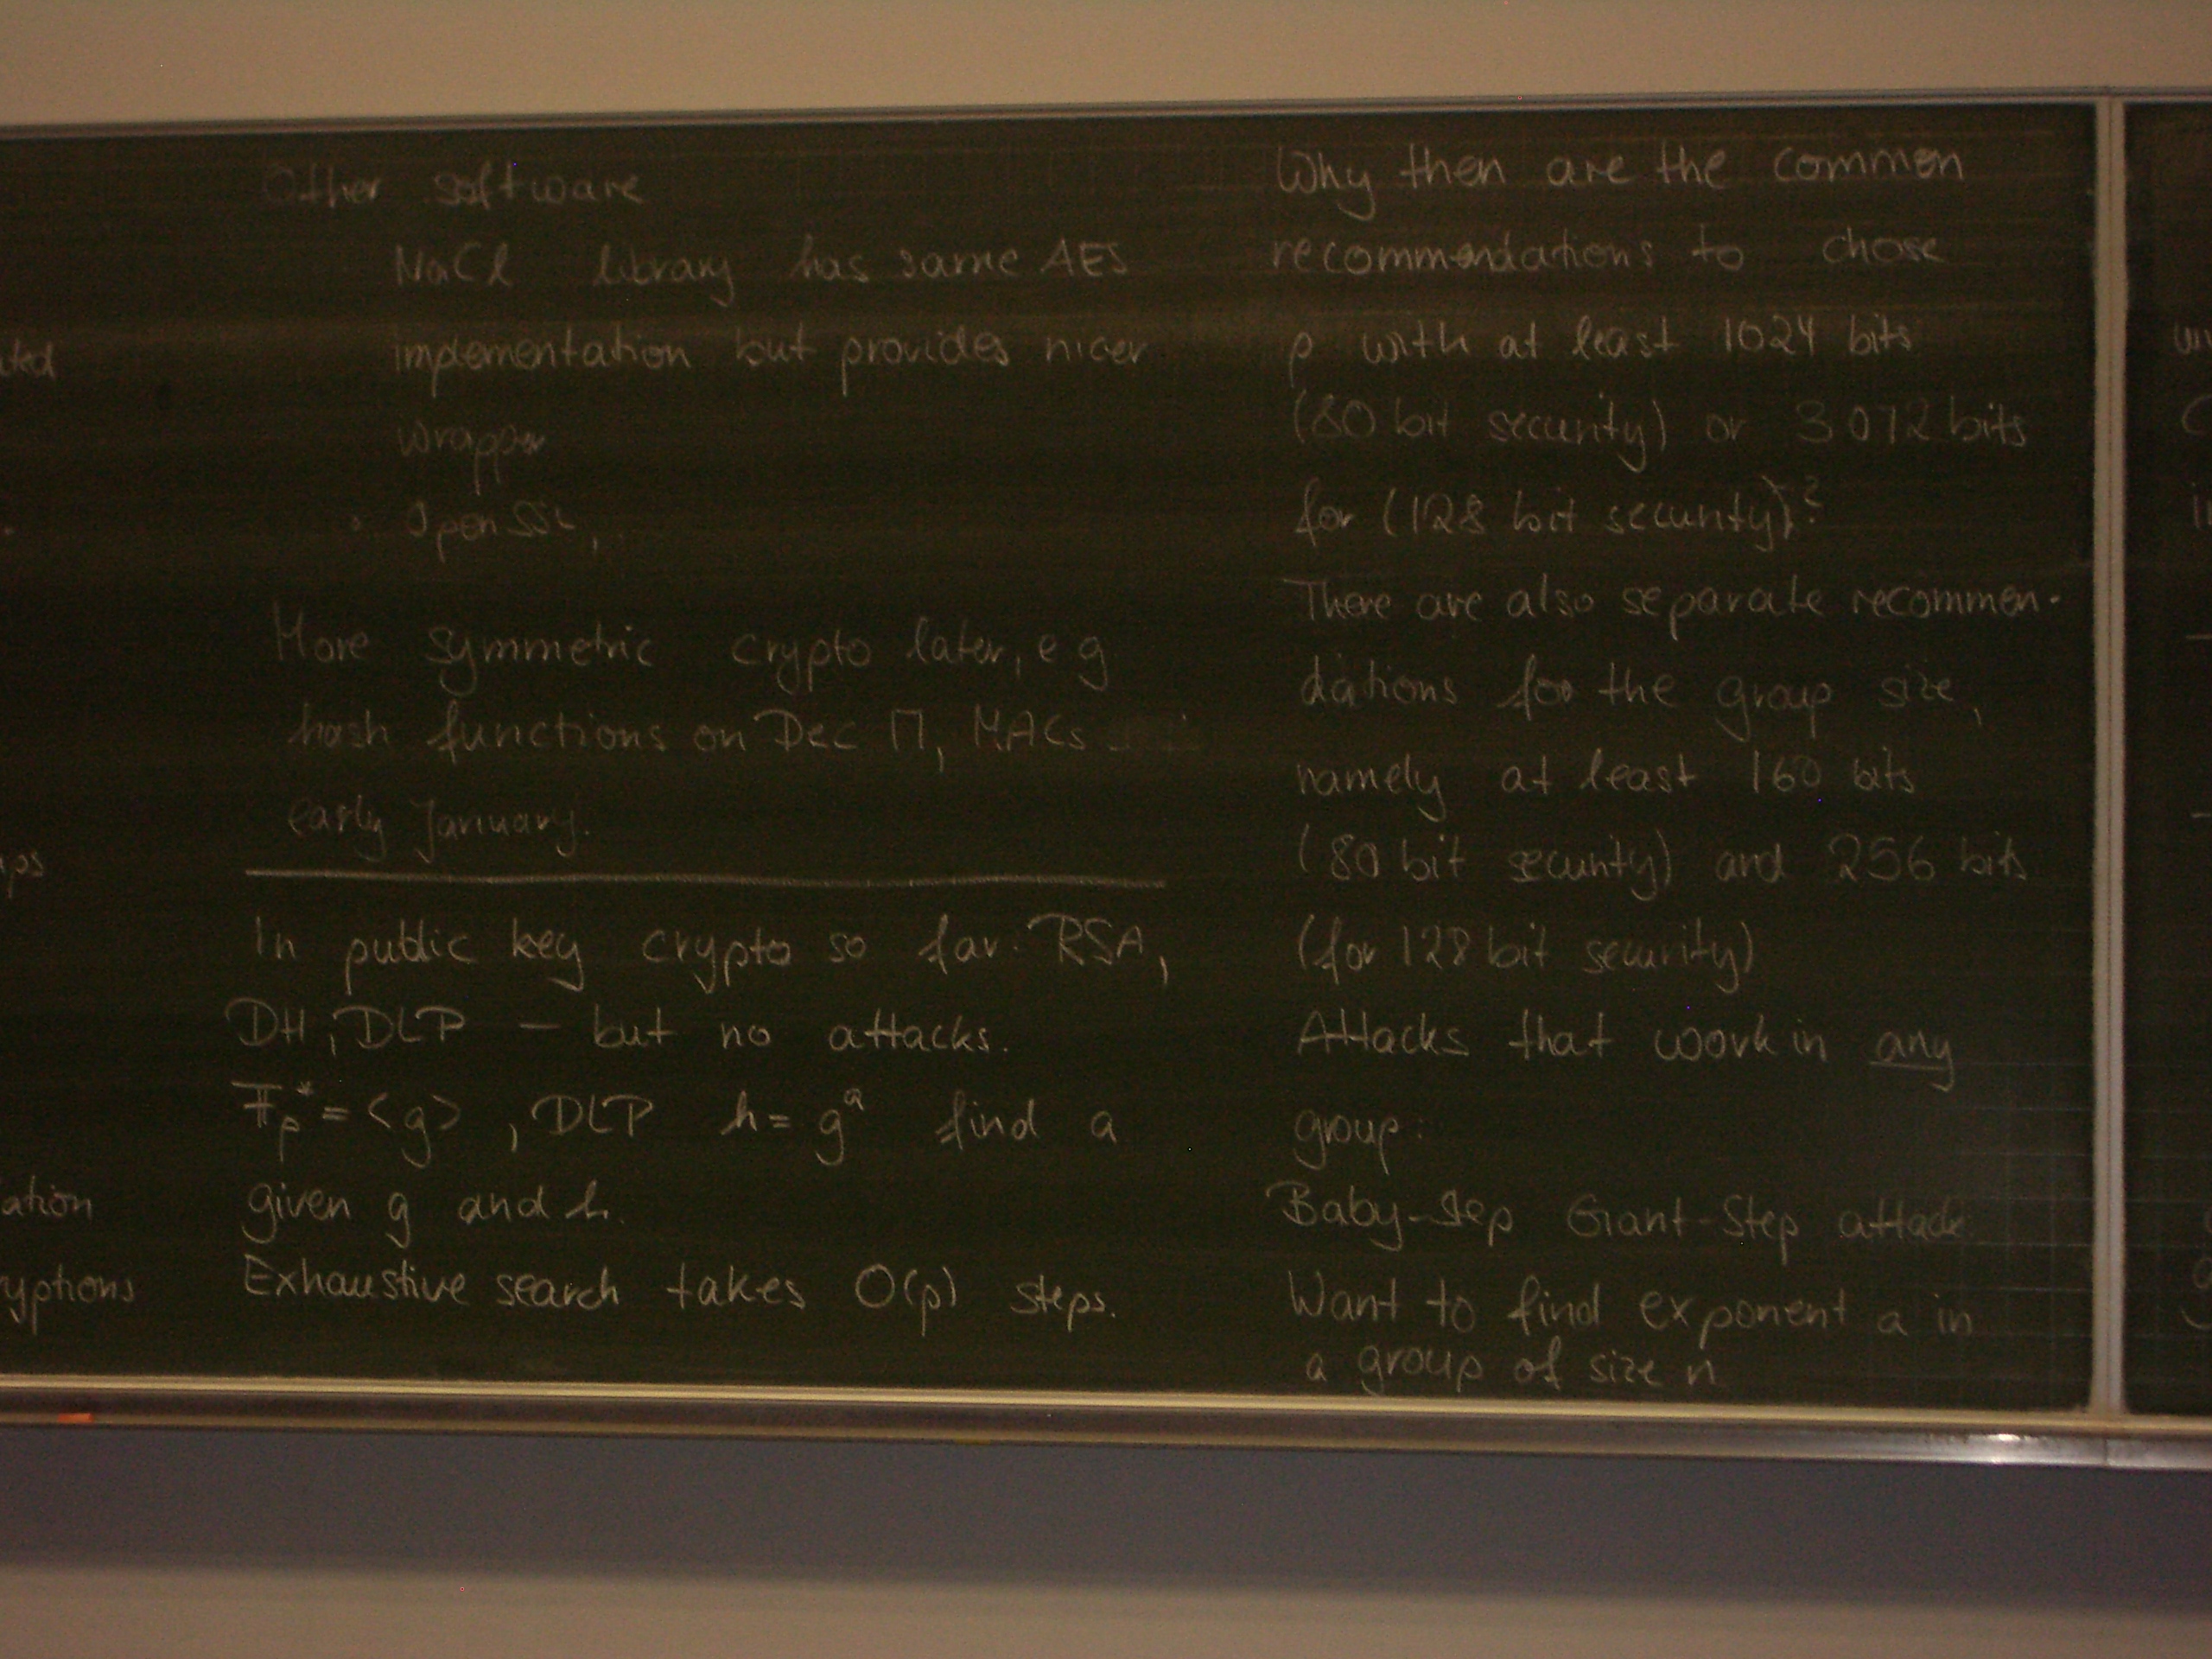 Other software
NaCl library has same AES
implementation but provides nicer
wrapper
• OpenSSL,
More symmetric crypto later, e g
hash functions on Dec 17, MACs
early January.
In public key crypto so far: RSA,
DH, DLP – but no attacks.
𝔽p* = <g>, DLP h = g^a find a
given g and h.
Exhaustive search takes O(p) steps.
Why then are the common
recommendations to chose
p with at least 1024 bits
(80 bit security) or 3072 bits
for (128 bit security)?
There are also separate recommen-
dations for the group size,
namely at least 160 bits
(80 bit security) and 256 bits
(for 128 bit security)
Attacks that work in any
group:
Baby-Step Giant-Step attack
Want to find exponent a in
a group of size n